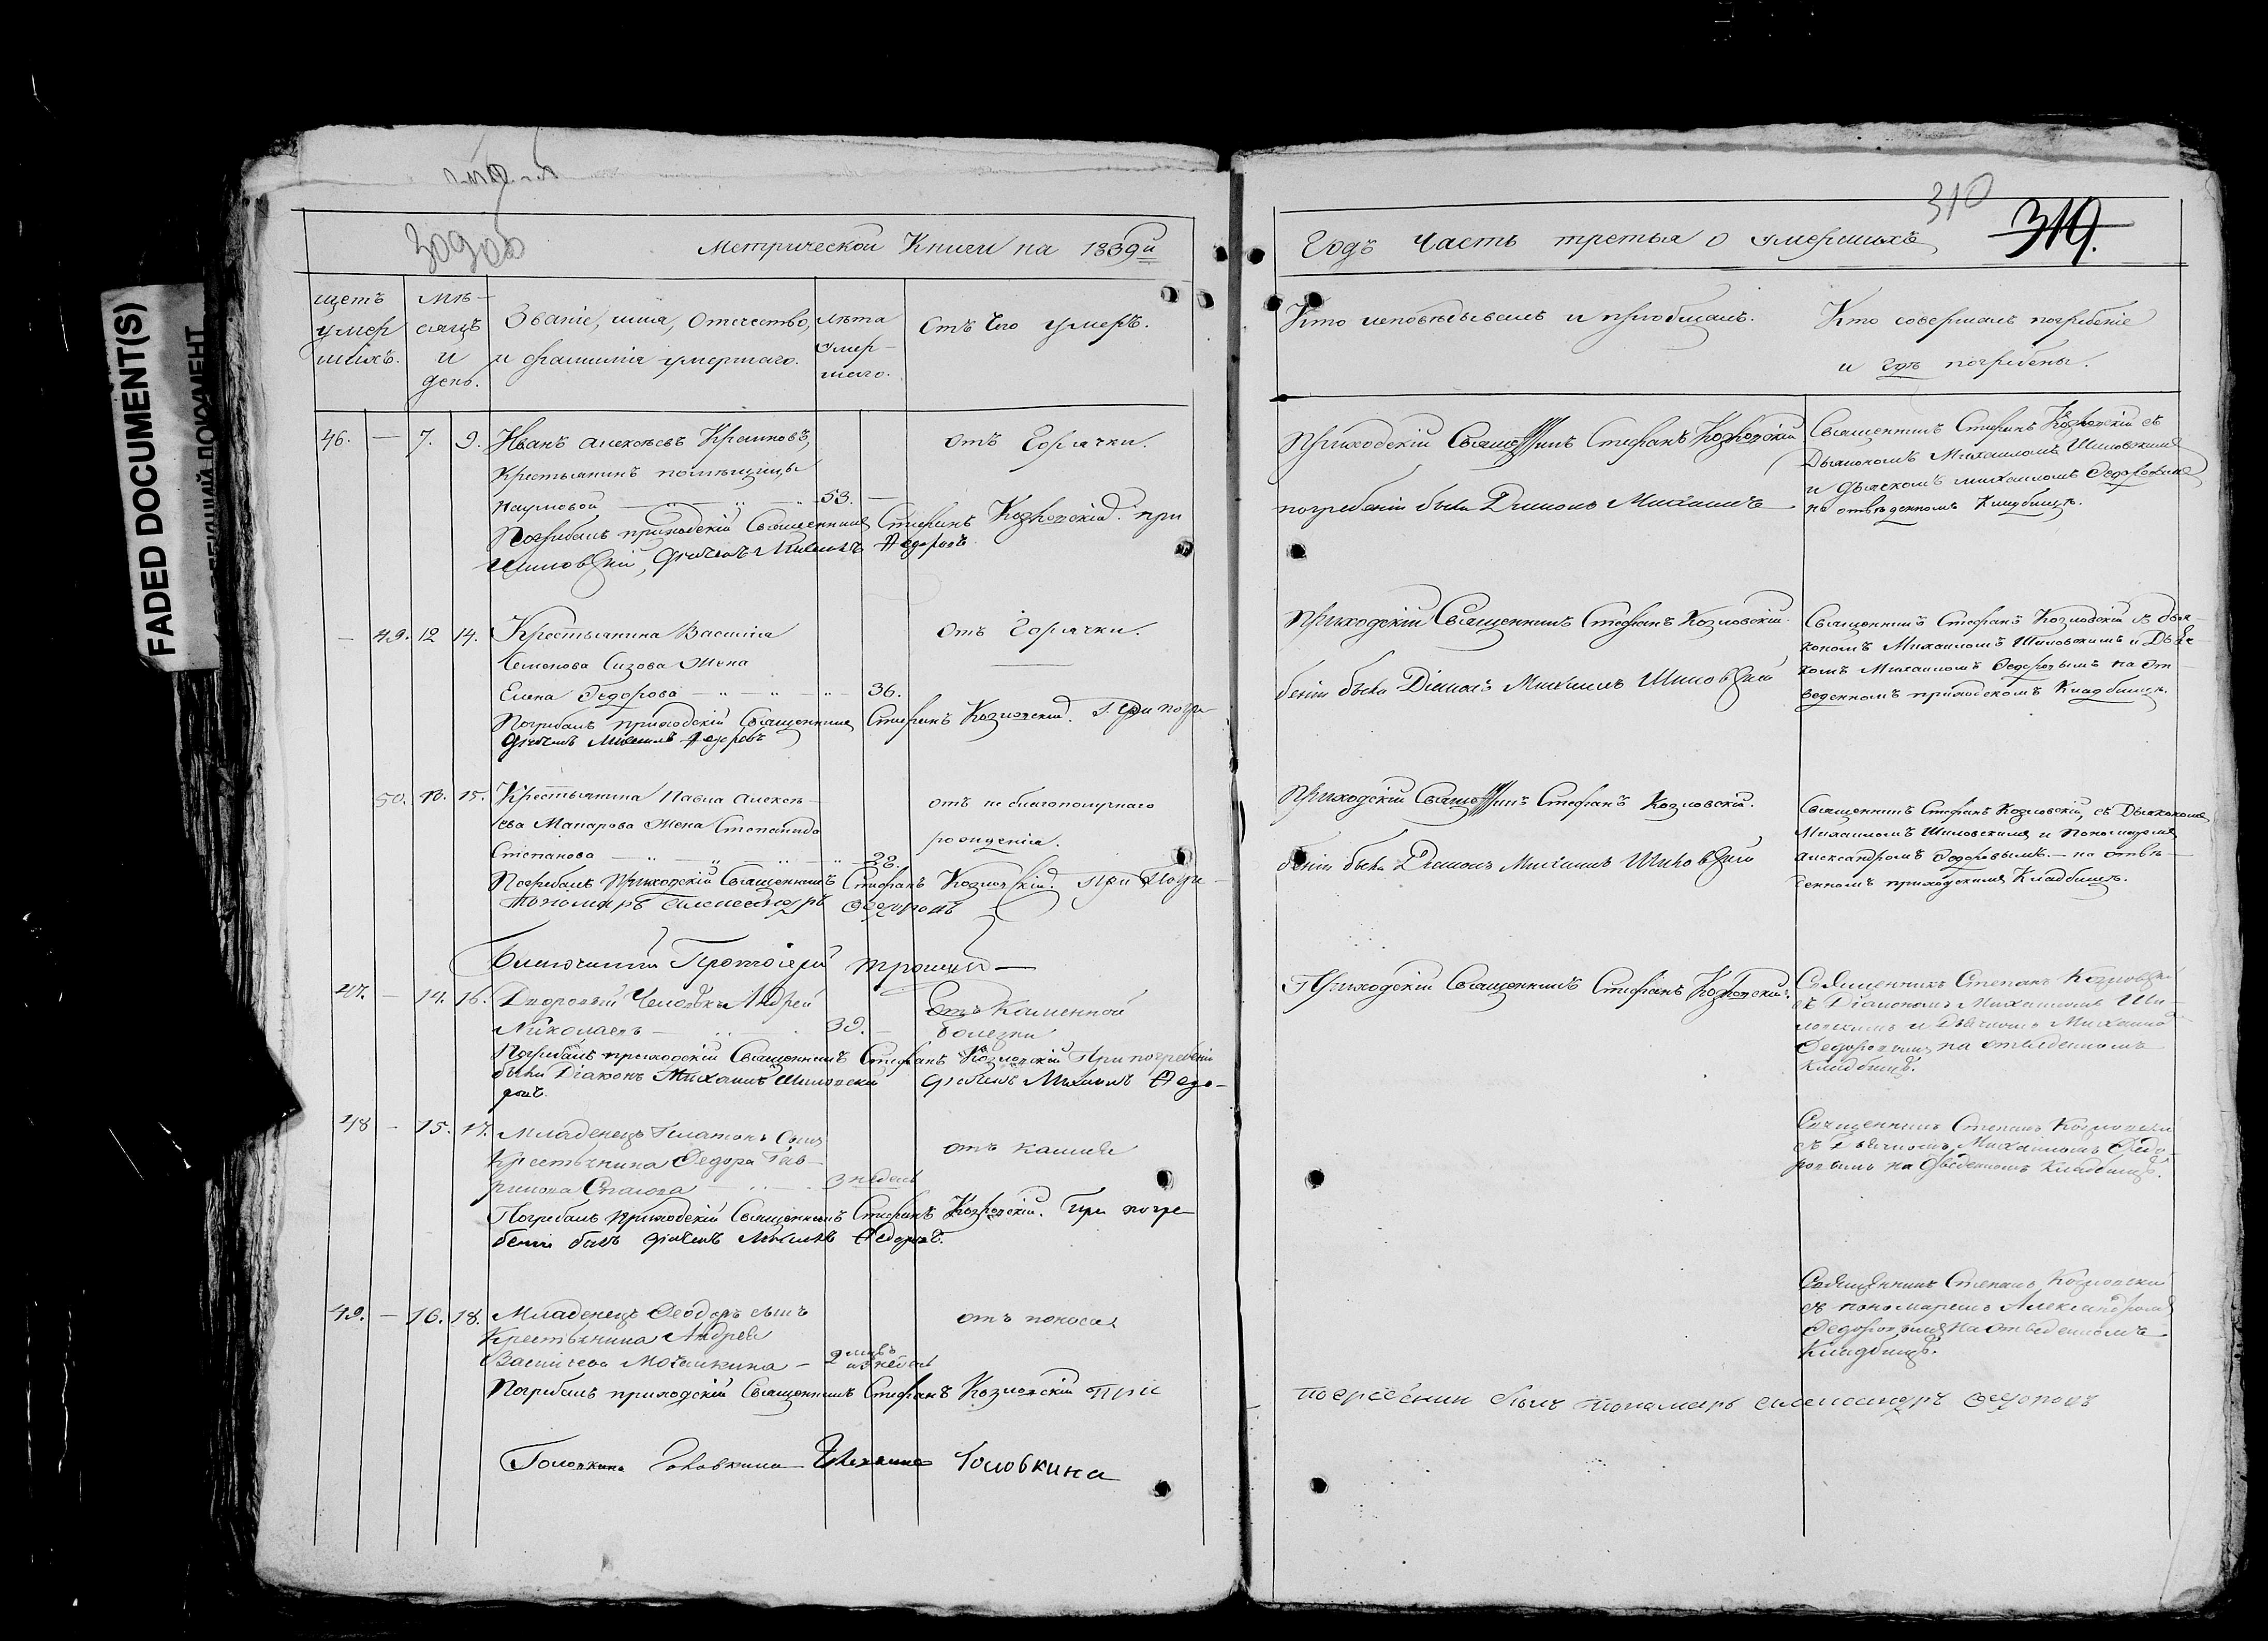 FADED DOCUMENT(S)
ДОКУМЕНТ
310
319.
Метрической Книги на 1839й
Годъ Часть третья о умершихъ
щетъ умер шихъ.
мѣ- сяцъ и день.
Званіе, имя, Отчество, и фамилія умершаго.
лѣта умер- шаго.
Отъ Чего умеръ.
Кто исповѣдывалъ и пріобщалъ.
Кто совершалъ погребеніе
и гдѣ погребены.
46. — 7. 9. Иванъ Алексѣевъ
Крестьянинъ помѣщицы
Наумовой — 53. —
отъ Горячки.
Погребалъ приходскій Священникъ Стефанъ Козловскій. при
погребеніи были Діаконъ Михаилъ
Шиловскій, дьячокъ Михаилъ Федоровъ
Приходскій Священникъ Стефанъ Козловскій
Священникъ Стефанъ Козловскій съ
Дьякономъ Михаиломъ Шиловскимъ
и дьячкомъ Михаиломъ Федоровымъ
на отведенномъ Кладбищѣ.
— 49. 12 14. Крестьянина Василія
Семенова Сизова Жена
Елена Федорова — 36.
Отъ Горячки.
Погребалъ приходскій Священникъ Стефанъ Козловскій. При погре
беніи были Діаконъ Михаилъ Шиловскій
дьячокъ Михаилъ Федоровъ
Приходскій Священникъ Стефанъ Козловскій.
Священникъ Стефанъ Козловскій съ дья-
кономъ Михаиломъ Шиловскимъ и Дьяч-
комъ Михаиломъ Федоровымъ на От-
веденномъ приходскомъ Кладбищѣ.
50. 13. 15. Крестьянина Павла Алексѣ-
ева Макарова Жена Степанида
Степанова — 28.
отъ не благополучнаго
рожденія.
Погребалъ Приходскій Священникъ Стефанъ Козловскій. При Погре-
беніи были Діаконъ Михаилъ Шиловскій
пономарь Александръ Федоровъ
Приходскій Священникъ Стефанъ Козловскій.
Священникъ Стефанъ Козловскій, съ Дьякономъ
Михаиломъ Шиловскимъ и Пономаремъ
Александромъ Федоровымъ. — на отве-
денномъ приходскимъ Кладбищѣ.
Протоіерей
47. — 14. 16. Дворовый Человѣкъ Андрей
Николаевъ — 39. —
Отъ Каменной
болезни
Погребалъ приходскій Священникъ Стефанъ Козловскій При погребеніи
были Діаконъ Михаилъ Шиловскій дьячокъ Михаилъ Федо-
ровъ.
Приходскій Священникъ Стефанъ Козловскій.
Священникъ Степанъ Козловскій
съ Діакономъ Михаиломъ Ши-
ловскимъ и Дьячкомъ Михаиломъ
Федоровымъ на отведенномъ
Кладбищѣ.
48 — 15. 17. Младенецъ Платонъ Сынъ
Крестьянина Федора Гав-
рилова — 3 недель
отъ кашля
Погребалъ Приходскій Священникъ Стефанъ Козловскій. При погре-
беніи былъ дьячокъ Михаилъ Федоровъ.
Священникъ Степанъ Козловскій
съ Дьячкомъ Михаиломъ Федо-
ровымъ на отведенномъ Кладбищѣ.
49. — 16. 18. Младенецъ Феодоръ сынъ
Крестьянина Андрея
Васильева Мочалкина —
отъ поноса
Погребалъ приходскій Священникъ Стефанъ Козловскій При
погребении былъ пономарь Александръ Федоровъ
Священникъ Степанъ Козловскій
съ пономаремъ Александромъ
Федоровымъ на отведенномъ
Кладбищѣ.
Головкина Головкина Головкина